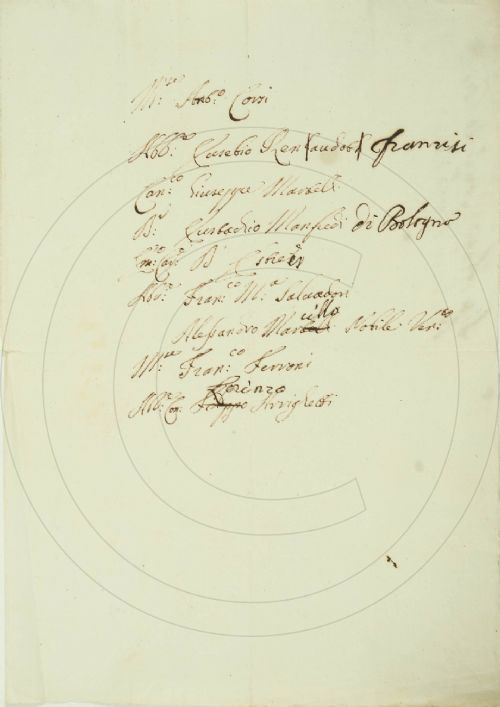 M.e Ant.o Corsi
Abb.e Eusebio Ren[audot] franzesi
Can.co Giuseppe Martelli
B.e Eustachio Manfredi di Bologna
B.
Abb.e Fran.co M.a Salvadori
Alessandro Marcello Nobile Ven.to
M.e Fran.co Ferroni
Lorenzo
Abb.e Can. Filippo Arrighetti